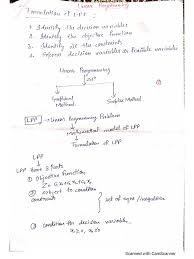 Linear Programming
Formulation of LPP :
1. Identify the decision variables
2. Identify the objective function
3. Identify all the constraints
4. Express decision variables as feasible variables
Linear Programming
Graphical Method
Simplex Method
LPP → Linear Programming Problem
Mathematical model of LPP
Formulation of LPP
LPP
LPP has 3 parts
① Objective Function
② subject to condition
constraints
set of eqns / inequations
③ condition for decision variables
Scanned with CamScanner